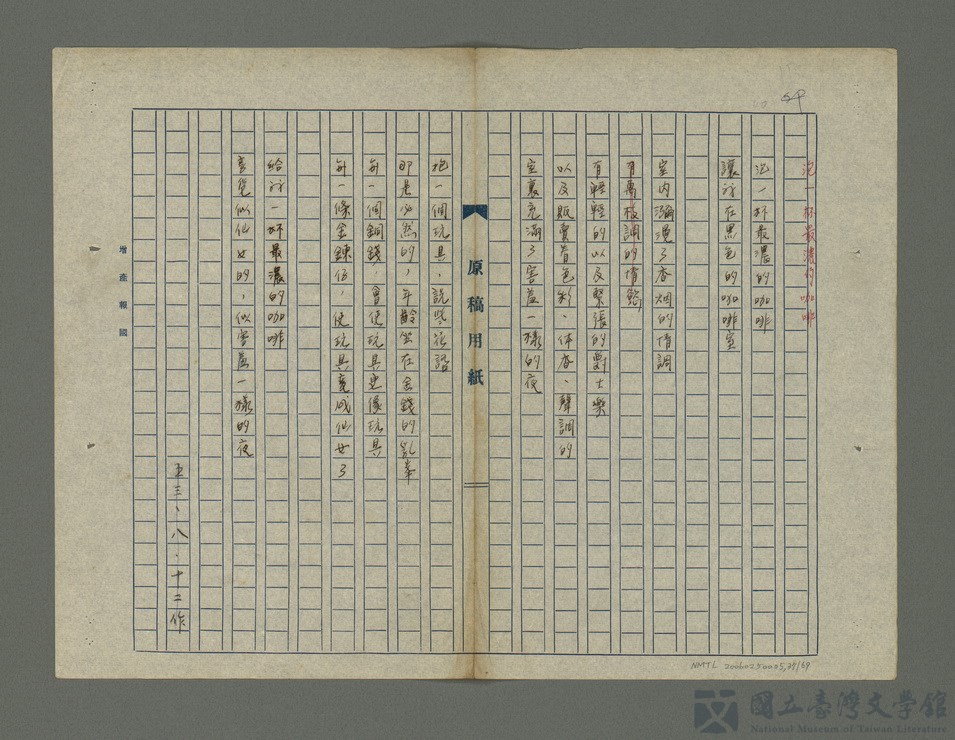 54
泡一杯最濃的咖啡
泡一杯最濃的咖啡
讓評在黑色的咖啡室
室內瀰漫了香烟的情調
有萬種調的情慾
有輕輕的以及緊張的爵士樂
以及販賣着色彩、体香、聲調的
室裏充滿了害羞一樣的夜
原稿用紙
抱一個玩具,說些
那是必然的,年齡坐在金錢的
每一個銅錢,會使玩具更像玩具
每一條金鍊伍,使玩具竟成仙女了
給評一杯最濃的咖啡
喜覺似仙女的,似害羞一樣的夜
五三、八.十二作
增產報國
NMTL 20060250005,39/69
國立臺灣文學館
National Museum of Taiwan Literature